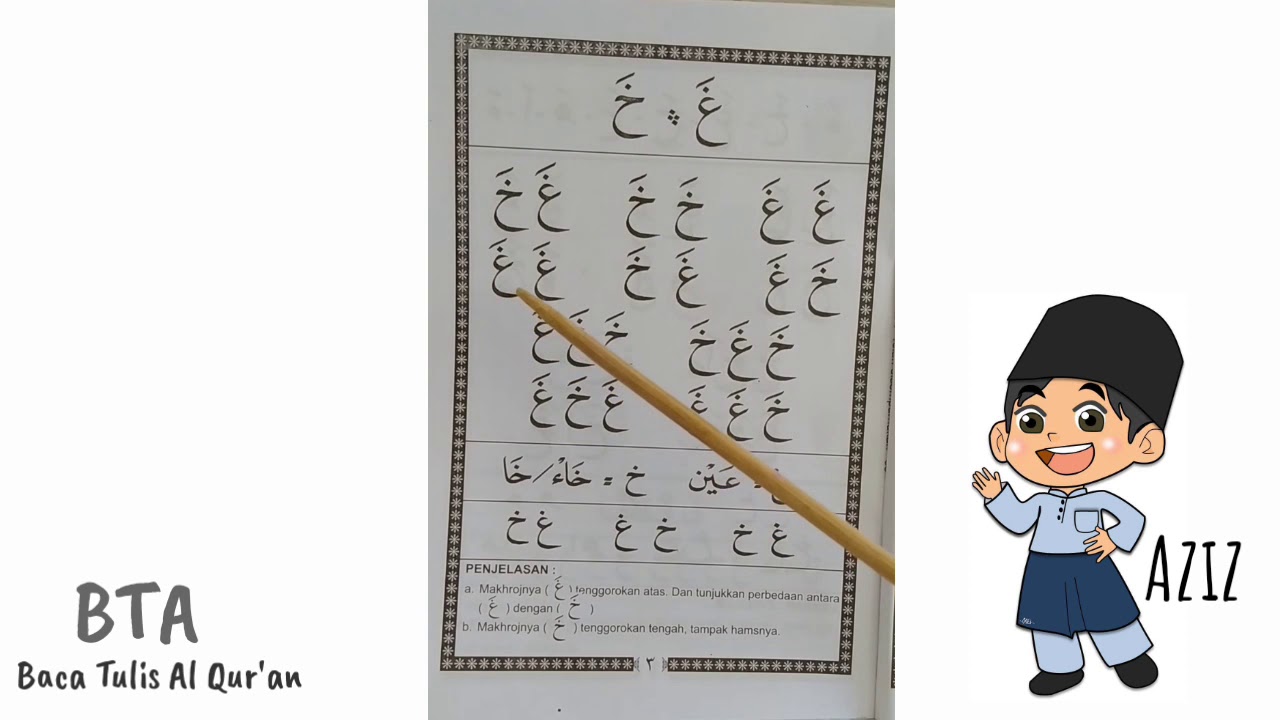 غَ خَ
غَ غَ خَ خَ غَ خَ
خَ غَ غَ خَ غَ غَ
خَ غَ خَ خَ غَ
خَ غَ غَ غَ خَ غَ
خ = خَاءْ/خَا
غ خ خ غ غ خ
PENJELASAN :
a. Makhrojnya ( غَ ) tenggorokan atas. Dan tunjukkan perbedaan antara
( غَ ) dengan ( خَ )
b. Makhrojnya ( خَ ) tenggorokan tengah, tampak hamsnya.
٣
BTA
Baca Tulis Al Qur'an
AZIZ